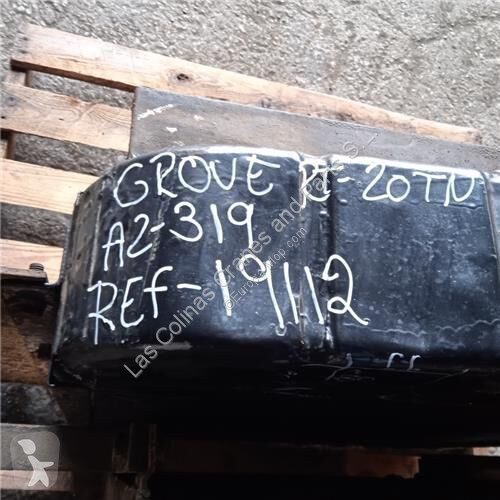 GROVE RT-20TN
A2-319
REF-19112
Las Colinas Cranes and Parts S.